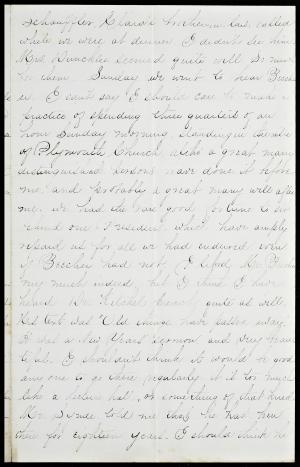 Schauffler, Clara's brother in law, called
while we were at dinner. I didn't see him
Mrs. seemed quite well. So much
for them. Sunday we went to hear Beech
er. I can't say I should care to make a
practice of spending three quarters of an
hour Sunday morning, standing outside
of Plymouth Church, altho a great many
distinguished persons have done it before
me, and probably a great many will after
me. We had the rare good fortune to see
and one President which have amply
repaid us for all we had endured even
if Beecher had not. I liked Mr. Beecher
very much indeed, but I think I have
heard Mr. quite as well.
His text was "Old things have passed away.
It was a New Years sermon and very beau
tiful. I shouldn't think it would be good
anyone to go there regularly. It is too much
like a picture hat, or something of that kind.
Mr. told me that he has been
there for eighteen years. I should think he